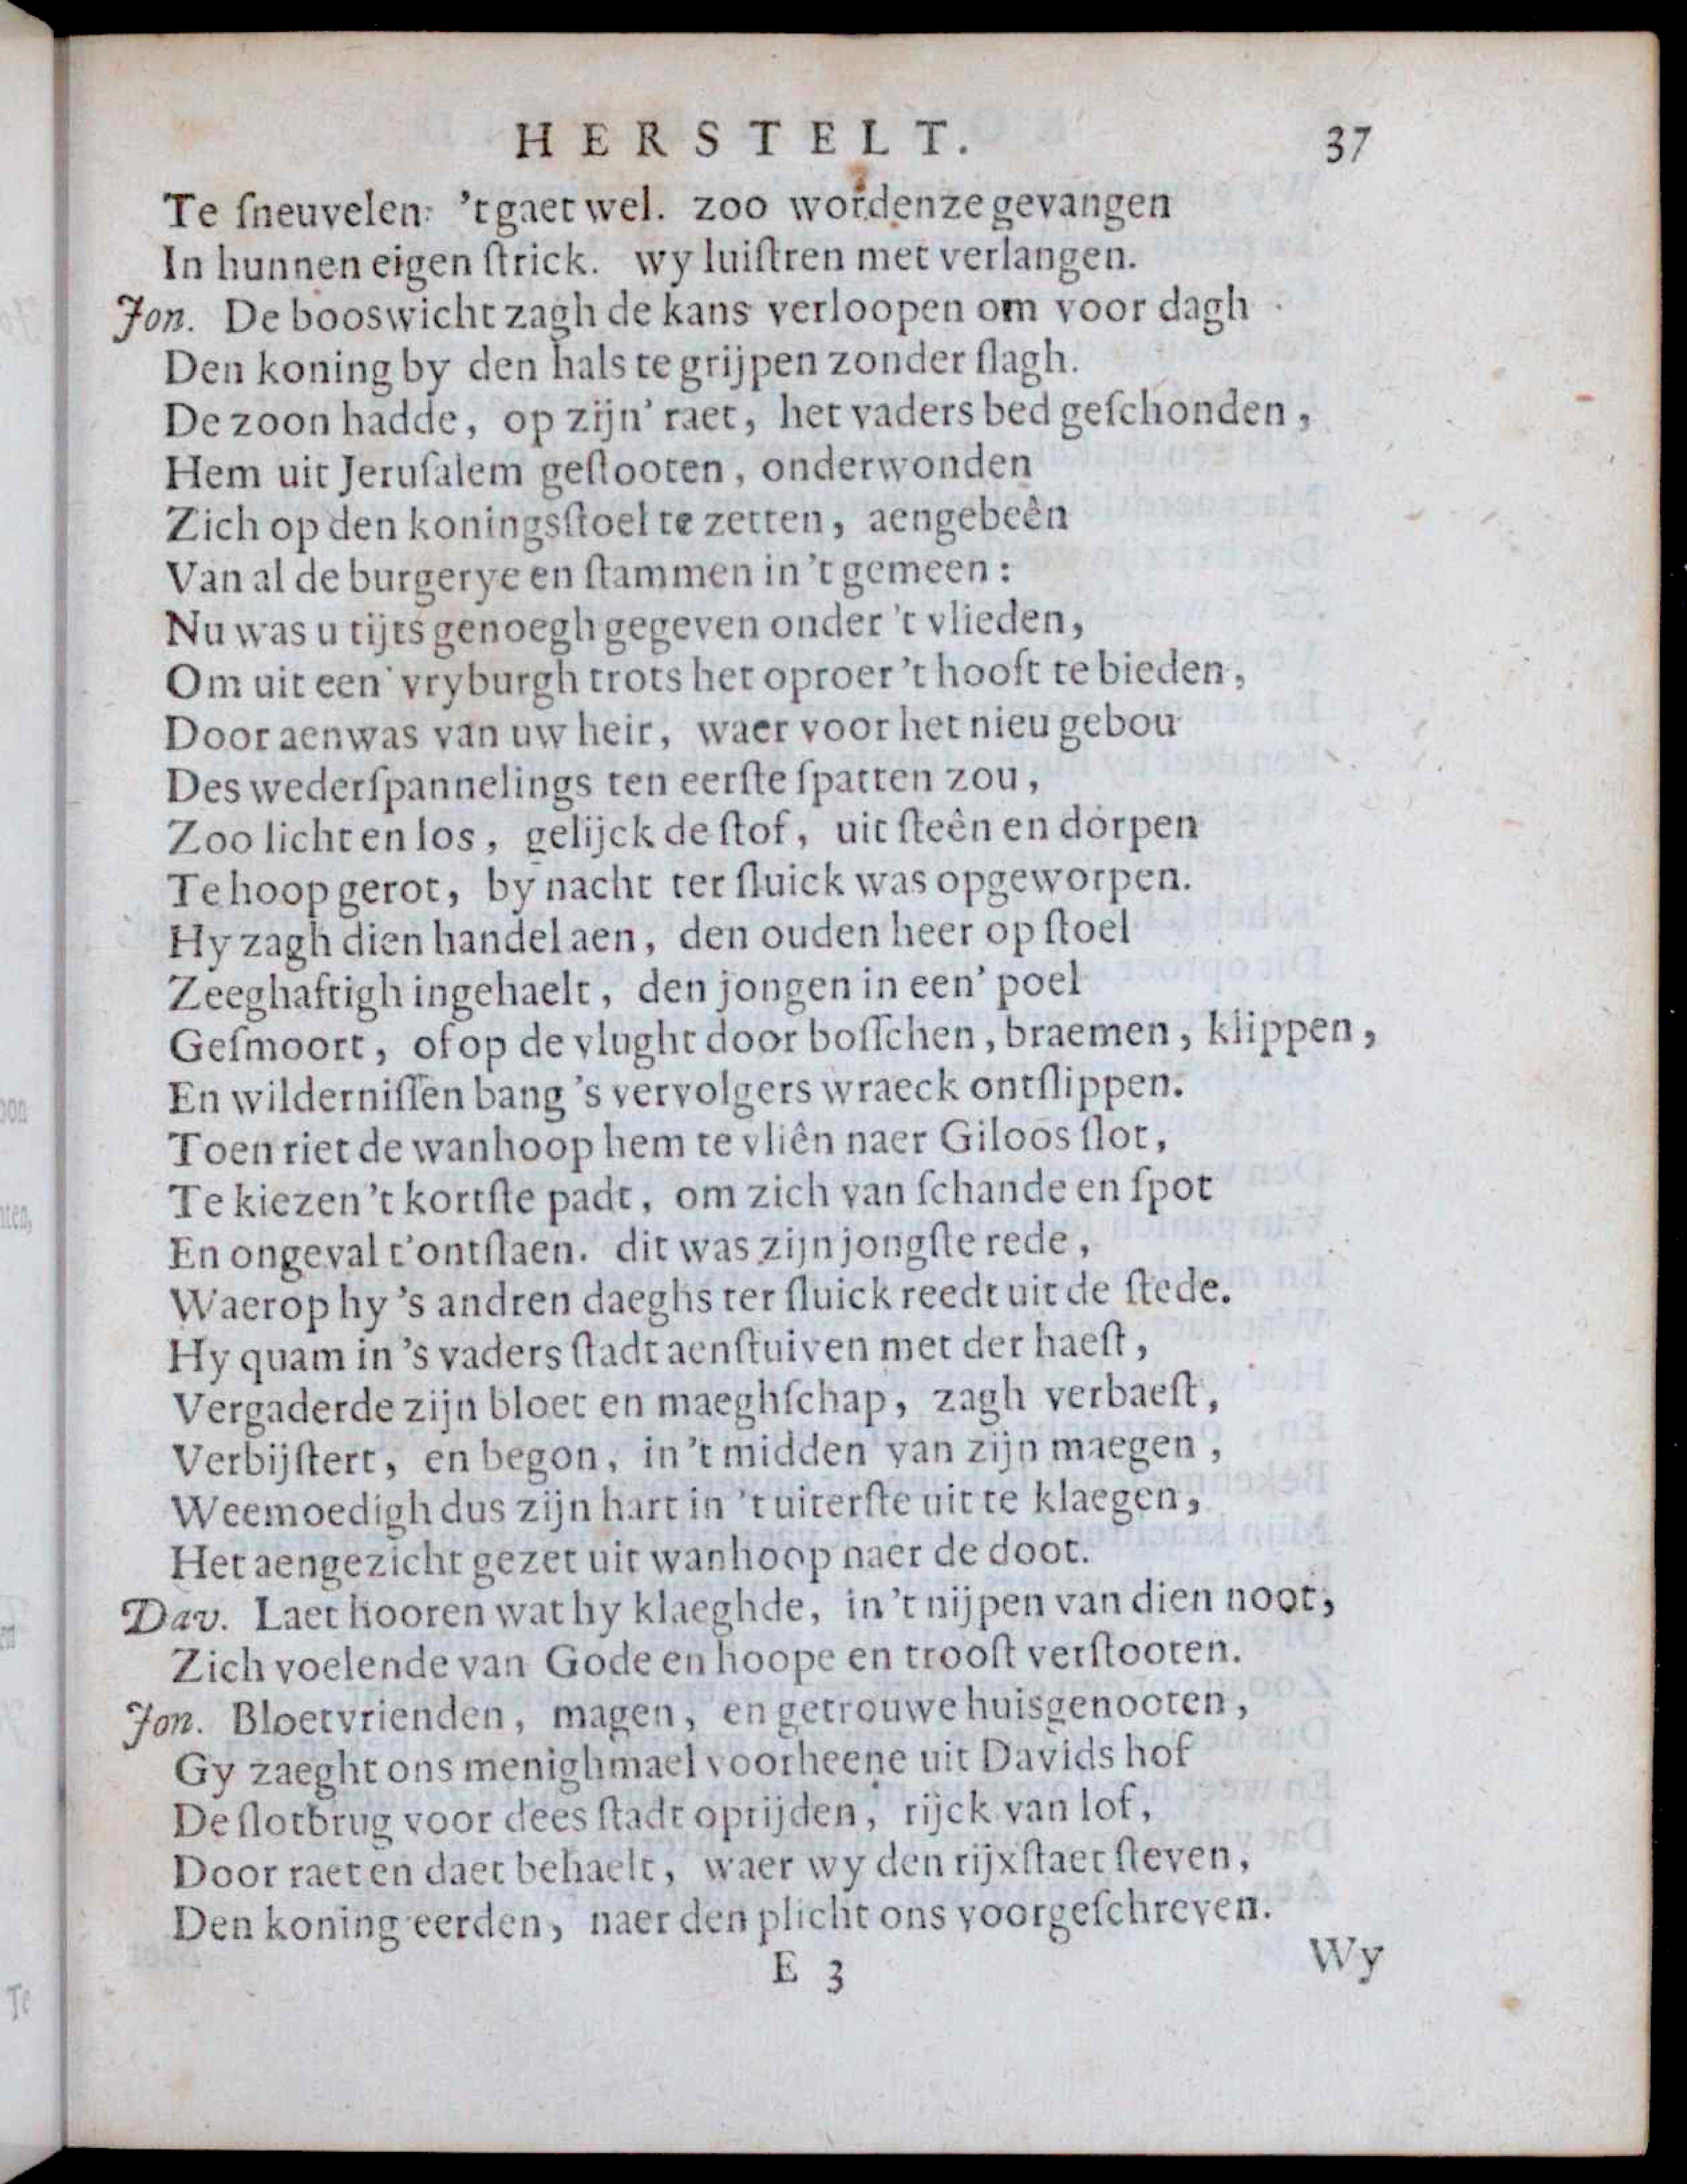 HERSTELT. 37
Te ſneuvelen: 't gaet wel. zoo wordenze gevangen
In hunnen eigen ſtrick. wy luiſtren met verlangen.
Jon. De booswicht zagh de kans verloopen om voor dagh
Den koning by den hals te grijpen zonder ſlagh.
De zoon hadde, op zijn' raet, het vaders bed geſchonden,
Hem uit Jeruſalem geſtooten, onderwonden
Zich op den koningsſtoel te zetten, aengebeên
Van al de burgerye en ſtammen in 't gemeen:
Nu was u tijts genoegh gegeven onder 't vlieden,
Om uit een' vryburgh trots het oproer 't hooft te bieden,
Door aenwas van uw heir, waer voor het nieu gebou
Des wederſpannelings ten eerſte ſpatten zou,
Zoo licht en los, gelijck de ſtof, uit ſteên en dorpen
Te hoop gerot, by nacht ter ſluick was opgeworpen.
Hy zagh dien handel aen, den ouden heer op ſtoel
Zeeghaftigh ingehaelt, den jongen in een' poel
Geſmoort, of op de vlught door boſſchen, braemen, klippen,
En wilderniſſen bang 's vervolgers wraeck ontſlippen.
Toen riet de wanhoop hem te vliên naer Giloos ſlot,
Te kiezen 't kortſte padt, om zich van ſchande en ſpot
En ongeval t'ontſlaen. dit was zijn jongſte rede,
Waerop hy 's andren daeghs ter ſluick reedt uit de ſtede.
Hy quam in 's vaders ſtadt aenſtuiven met der haeſt,
Vergaderde zijn bloet en maeghſchap, zagh verbaeſt,
Verbijſtert, en begon, in 't midden van zijn maegen,
Weemoedigh dus zijn hart in 't uiterſte uit te klaegen,
Het aengezicht gezet uit wanhoop naer de doot.
Dav. Laet hooren wat hy klaeghde, in 't nijpen van dien noot,
Zich voelende van Gode en hoope en trooſt verſtooten.
Jon. Bloetvrienden, magen, en getrouwe huisgenooten,
Gy zaeght ons menighmael voorheene uit Davids hof
De ſlotbrug voor dees ſtadt oprijden, rijck van lof,
Door raet en daet behaelt, waer wy den rijxſtaet ſteven,
Den koning eerden, naer den plicht ons voorgeſchreven.
E 3 Wy